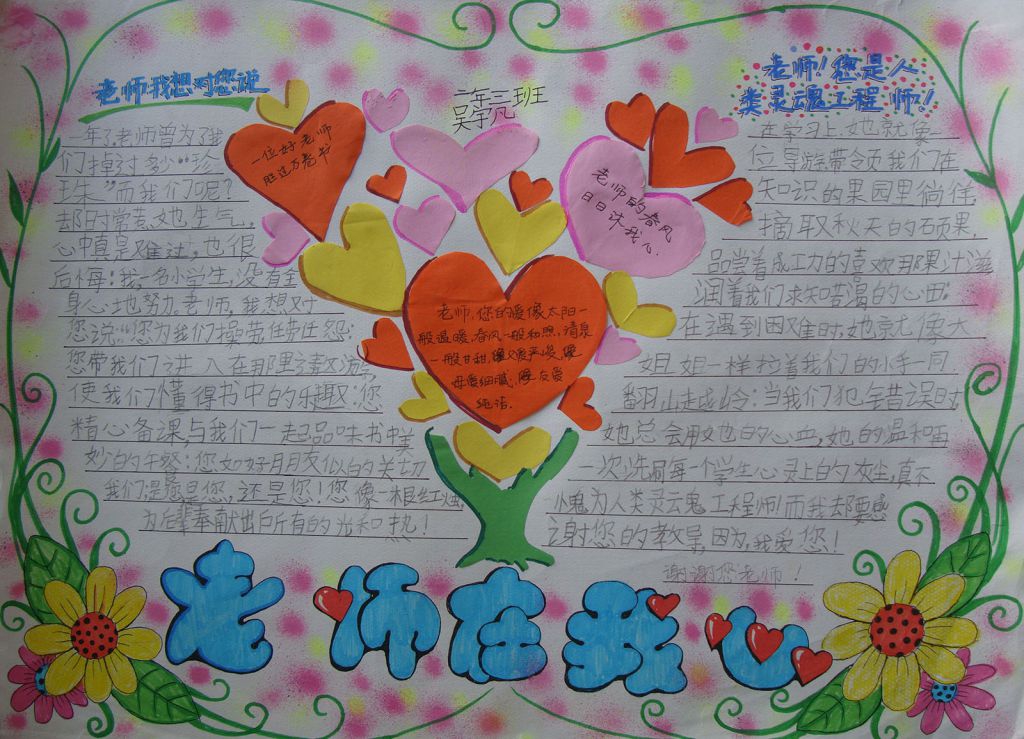 老师我想对您说
一年了老师曾为了我
们掉过多少“珍
珠”而我们呢?
却时常惹她生气,
心中真是难过,也很
后悔:我一名小学生,没有全
身心地努力。老师,我想对
您说:“您为我们操劳任劳任怨;
您带我们进入在那里
使我们懂得书中的乐趣:您
精心备课,与我们一起品味书中美
妙的午餐:您如好朋友似的关切
我们;是您是您,还是您!您像一根红烛,
为后辈奉献出所有的光和热!
二年三班
吴宇凡
一位好老师
胜过万卷书
老师的春风
日日沐我心
老师,您的爱像太阳一
般温暖,春风一般和煦,清泉
一般甘甜,父爱严峻,
母爱细腻,友爱
纯洁.
老师!您是人
类灵魂工程师!
在学习上,她就像一
位导游带领我们在
知识的果园里徜徉,
摘取秋天的硕果,
品尝着成功的喜欢那果汁滋
润着我们求知若渴的心田:
在遇到困难时她就像大
姐姐一样拉着我们的小手一同
翻山越岭:当我们犯错误时
她总会用她的心血,她的温和再
一次洗刷每一个学生心灵上的灰尘,真不
愧为人类灵魂工程师!而我却要感
谢您的教导,因为,我爱您!
谢谢您老师!
老师在我心